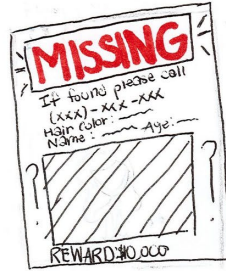 MISSING
If found please call
(xxx)-xxx-xxx
Hair Color:
Name: Age:
? ?
REWARD:$10,000